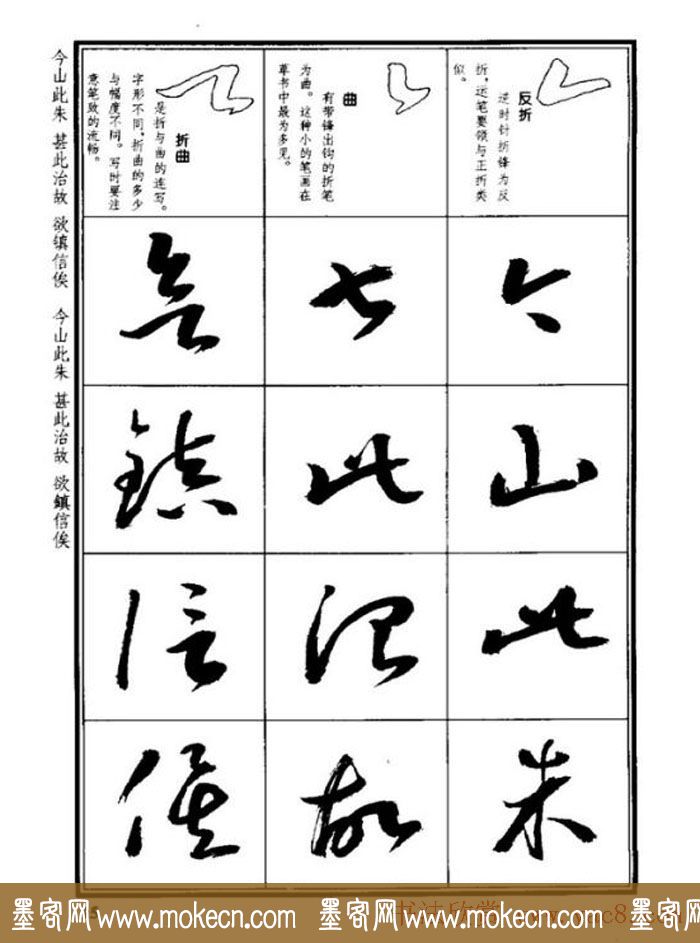 反折
逆时针折锋为反
折,运笔要领与正折类
似。
今山此朱
曲
有带锋出钩的折笔
为曲。这种小的笔画在
草书中最为多见。
甚此治故
折曲
是折与曲的连写。
字形不同,折曲的多少
与幅度不同。写时要注
意笔致的流畅。
欲鎮信俟
今山此朱 甚此治故 欲镇信俟 今山此朱 甚此治故 欲鎮信俟
墨客网www.mokecn.com 墨客网www.mokecn.com 墨客网
书法欣赏